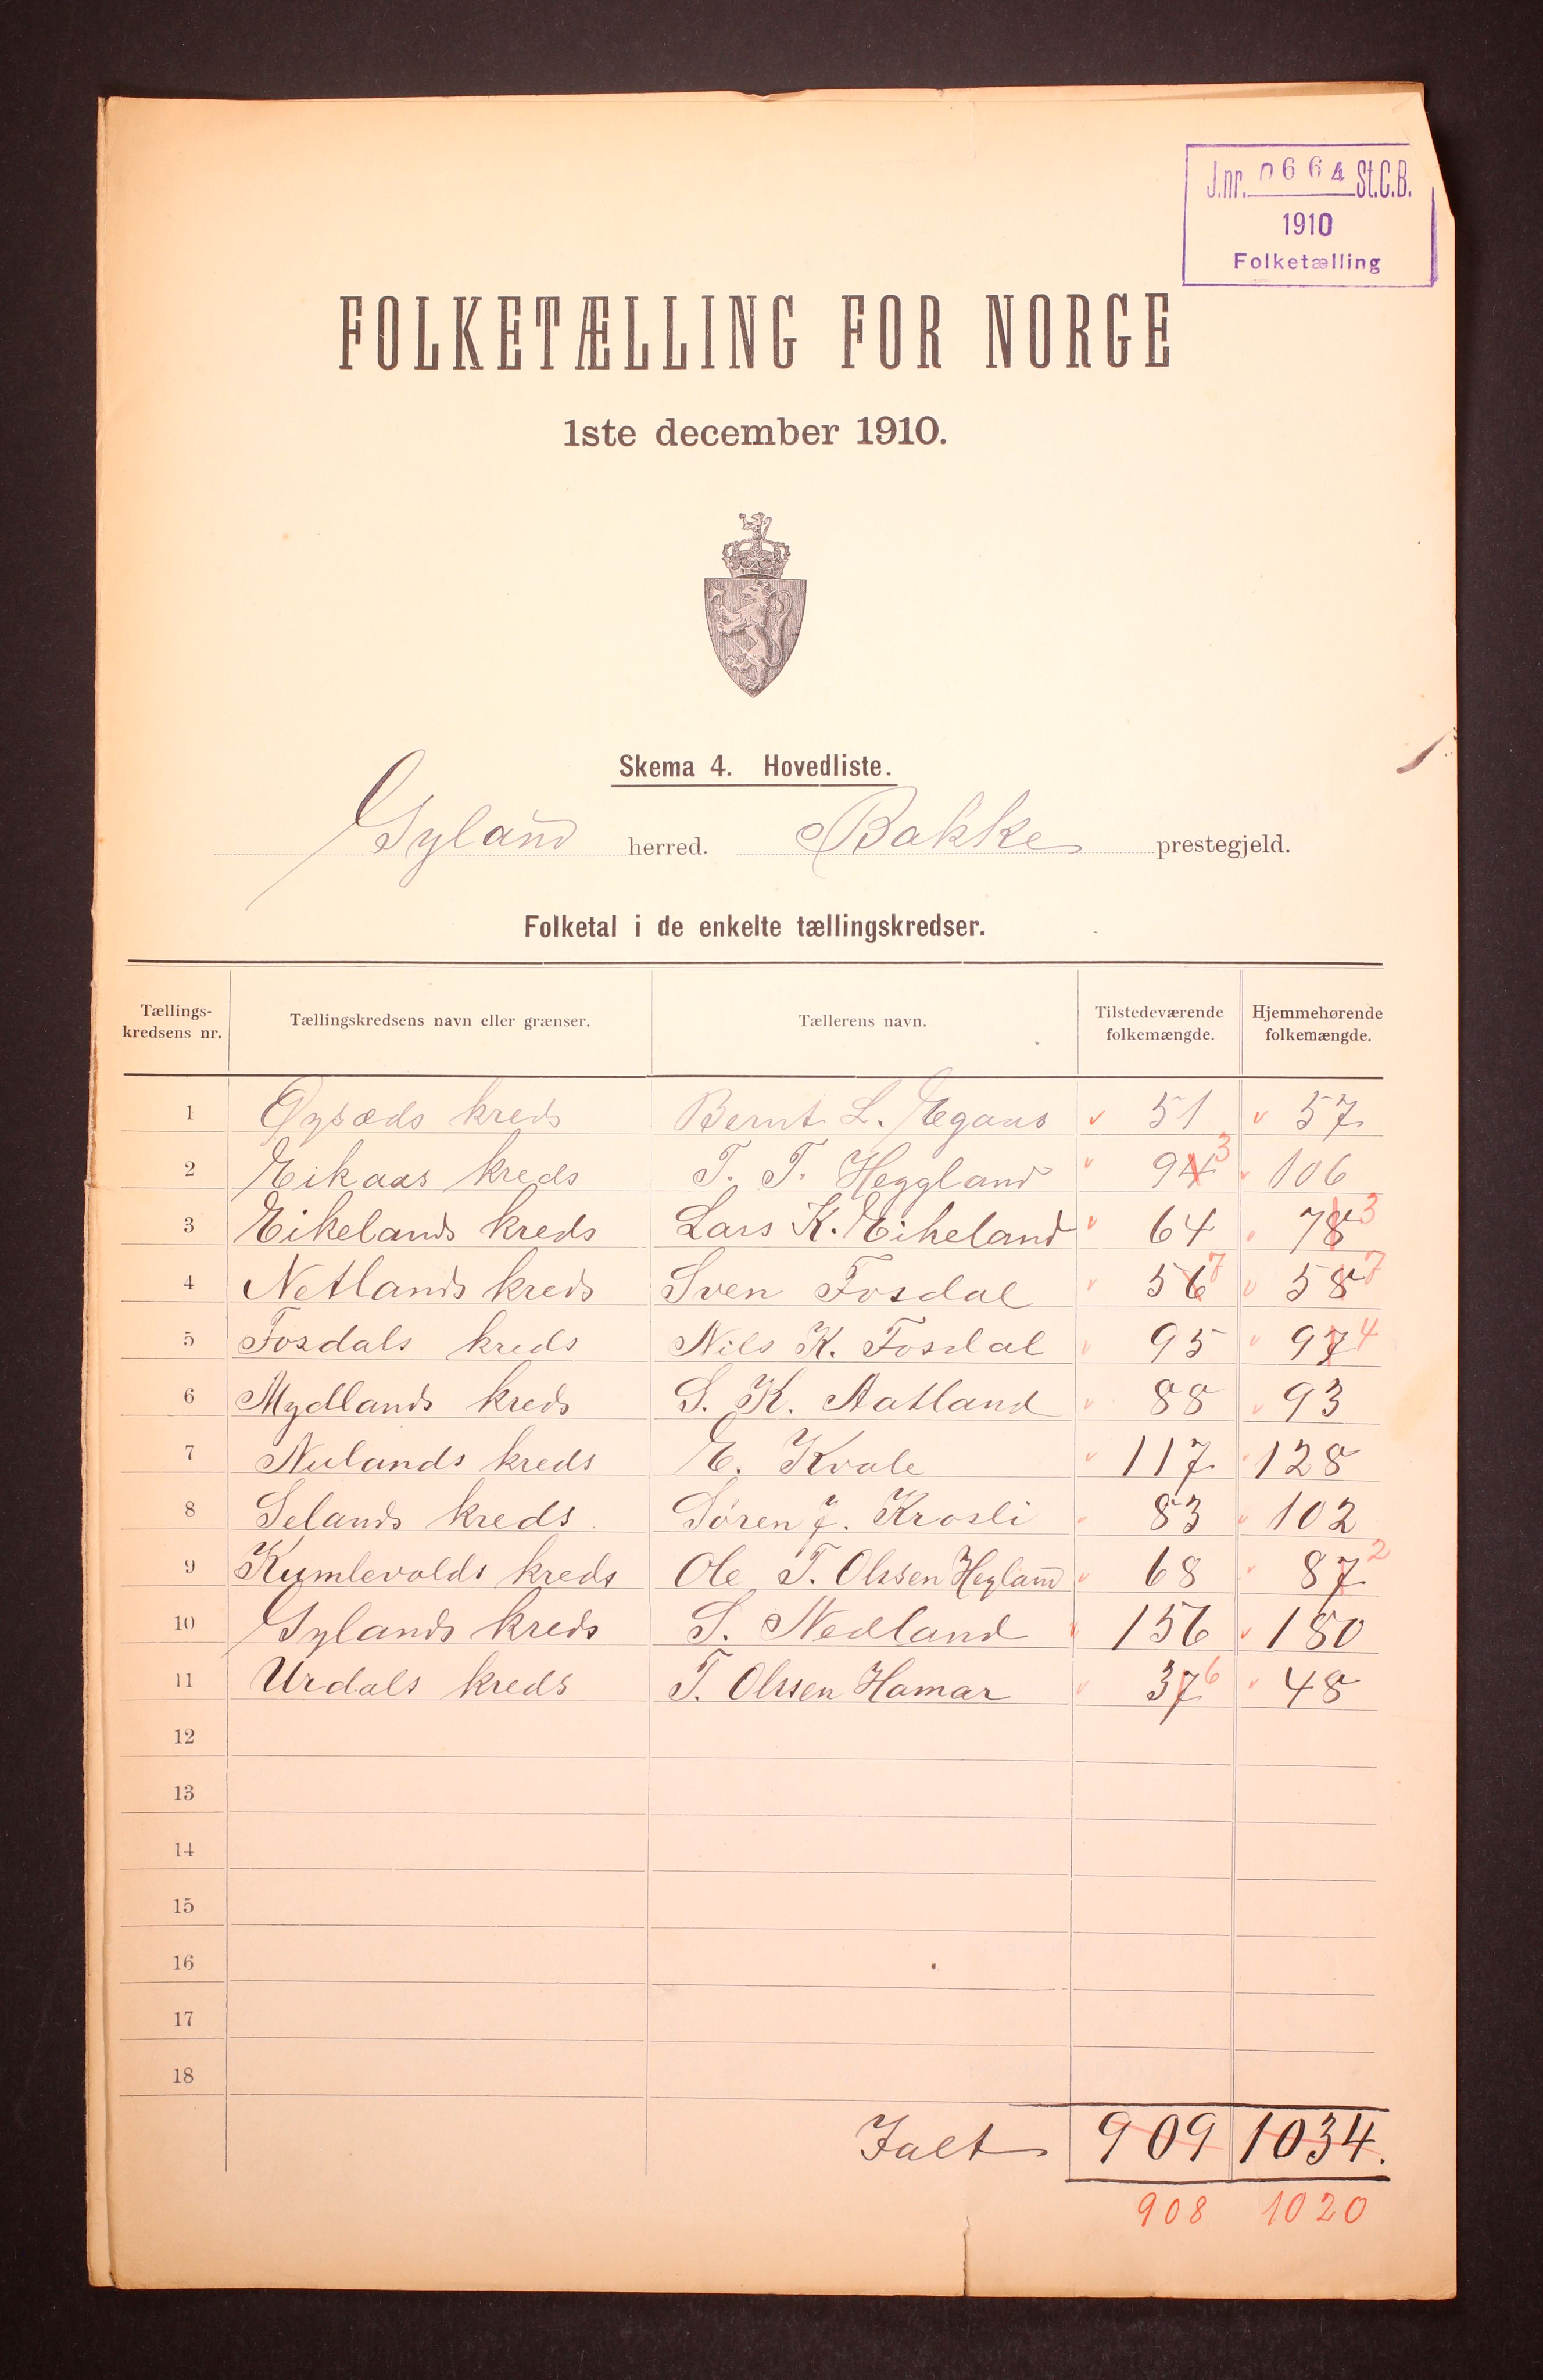 J.nr. 0664 St.C.B.
1910
Folketælling
FOLKETÆLLING FOR NORGE
1ste december 1910.
Skema 4. Hovedliste.
Gyland herred. Bakke prestegjeld.
Folketal i de enkelte tællingskredser.
Tællings-kredsens nr. Tællingskredsens navn eller grænser. Tællerens navn. Tilstedeværende folkemængde. Hjemmehørende folkemængde.
1 Øysæds kreds Bernt L. Egaas v 51 v 57
2 Eikaas kreds T. T. Heggland v 94 3 v 106
3 Eikelands kreds Lars K. Eikeland v 64 v 78 3
4 Netlands kreds Sven Fosdal v 56 7 v 58 7
5 Fosdals kreds Nils K. Fosdal v 95 v 97 4
6 Mydlands kreds S. K. Aatland v 88 v 93
7 Nulands kreds E. Kvale v 117 v 128
8 Selands kreds Søren J. Krosli v 83 v 102
9 Kumlevolds kreds Ole T. Olssen Hegland v 68 v 87 2
10 Gylands kreds S. Nedland v 156 v 180
11 Urdals kreds T. Olssen Hamar v 37 6 v 48
12
13
14
15
16
17
18
Ialt 909 1034.
908 1020